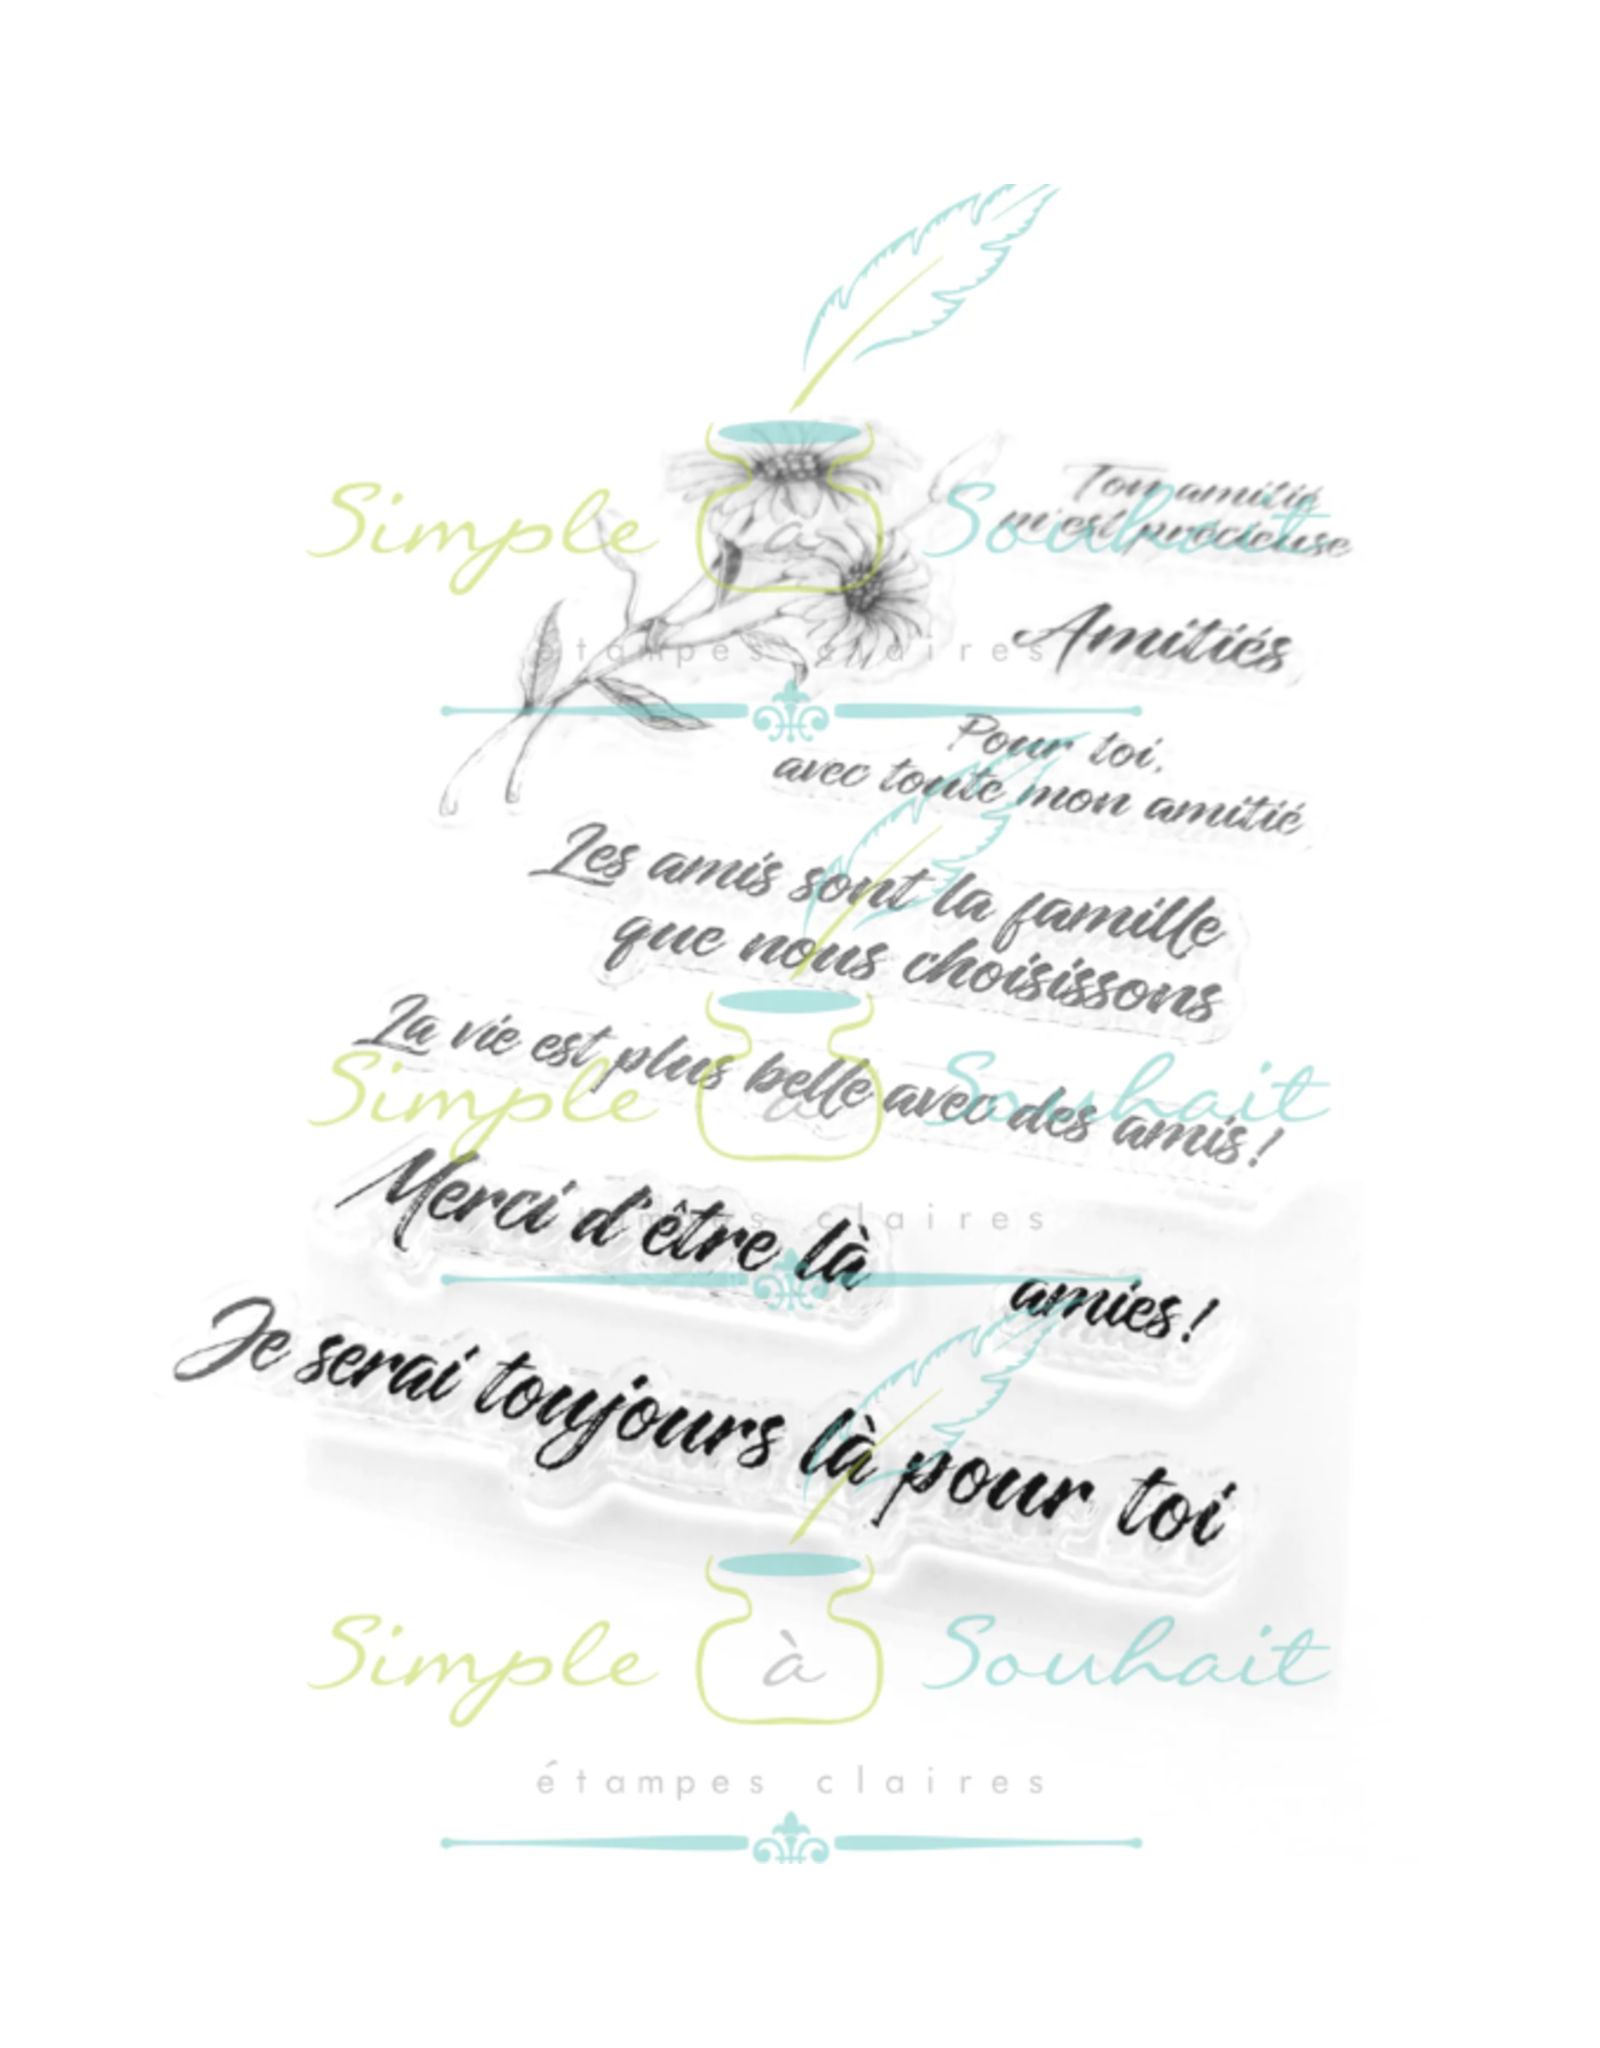 Simple à Souhait
étampes claires
Ton amitié
m'est précieuse
Amitiés
Pour toi,
avec toute mon amitié
Les amis sont la famille
que nous choisissons
La vie est plus belle avec des amis!
Simple à Souhait
étampes claires
Merci d'être là
amies!
Je serai toujours là pour toi
Simple à Souhait
étampes claires